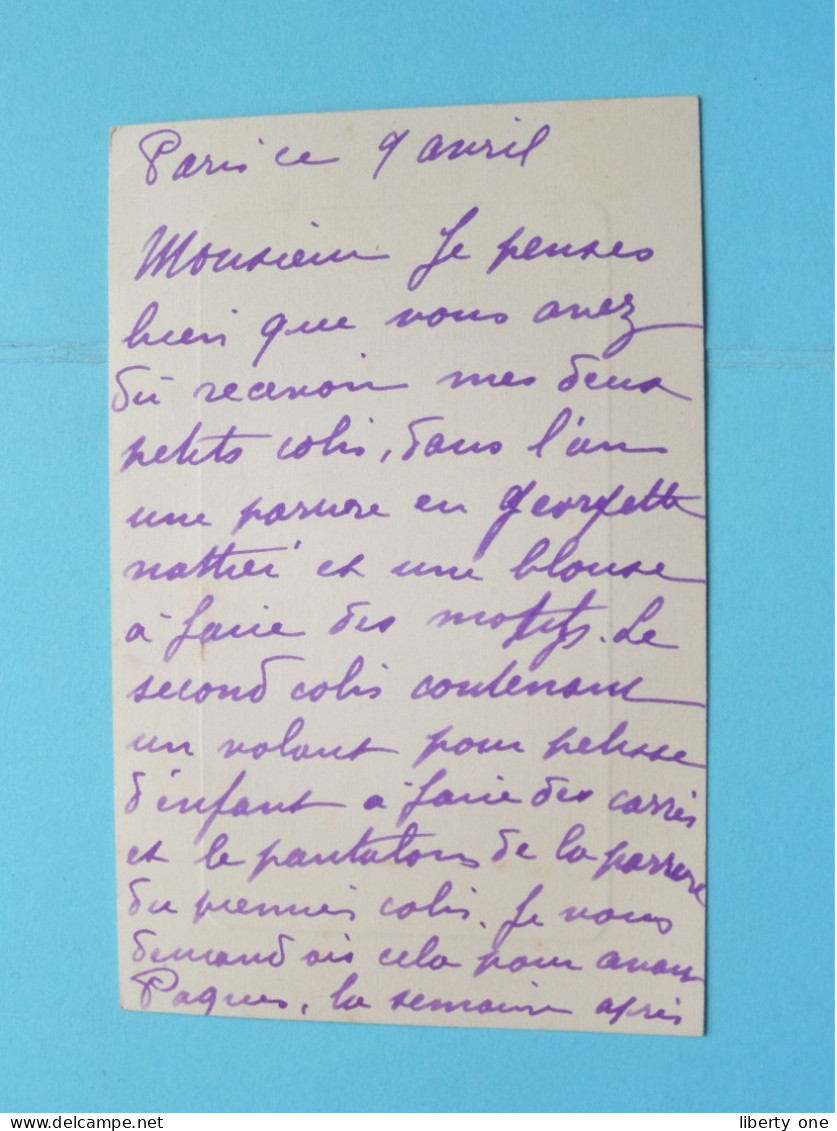 Paris ce 9 avril
Monsieur Je penses
bien que vous avez
dû recevoir mes deux
petits colis, dans l'un
une parure en georgette
nattier et une blouse
à faire des motifs. Le
second colis contenant
un volant pour pelisse
d'enfant à faire des carrés
et le pantalons de la parrure
du premier colis. Je vous
demandais cela pour avant
Paques, la semaine après
delcampe.net
liberty one